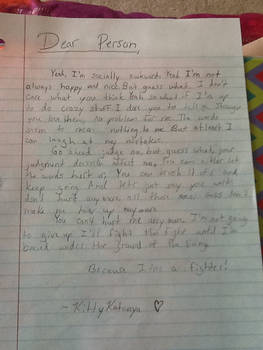 Dear Person,
Yeah, I'm socially awkward. Yeah I'm not
always happy and nice. But guess what. I don't
care what you think. Yeah so what if I'm up
to do crazy stuff. I dare you to tell a
you but they. No problems for me. The words
mean nothing to me. But at least I
can laugh at my mistakes.
Go ahead, judge me, but guess what, your
judgment doesn't affect me. You can either let
the words hurt or, You can brush it off and
keep going. And let's just say your words
don't hurt anymore all those
make me anymore
You can't hurt me any more. I'm not going
to give up. I'll fight this fight until I'm
buried under the ground of
Because I'm a fighter!
~Kitty Katsaya ♡